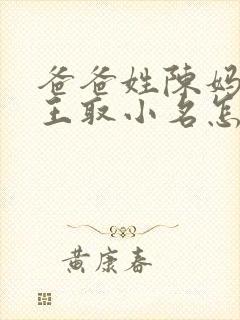 爸爸姓陈妈
王取小名怎
黄康春